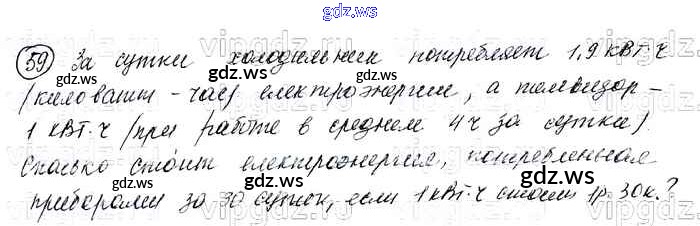 gdz.ws
59 За сутки холодильник потребляет 1,9 кВт·ч
(киловатт-час) електроэнергии, а телевизор –
1 кВт·ч (при работе в среднем 4 ч за сутки).
Сколько стоит електроэнергия, потребленная
приборами за 30 суток, если 1 кВт·ч стоит 1р. 30к.?